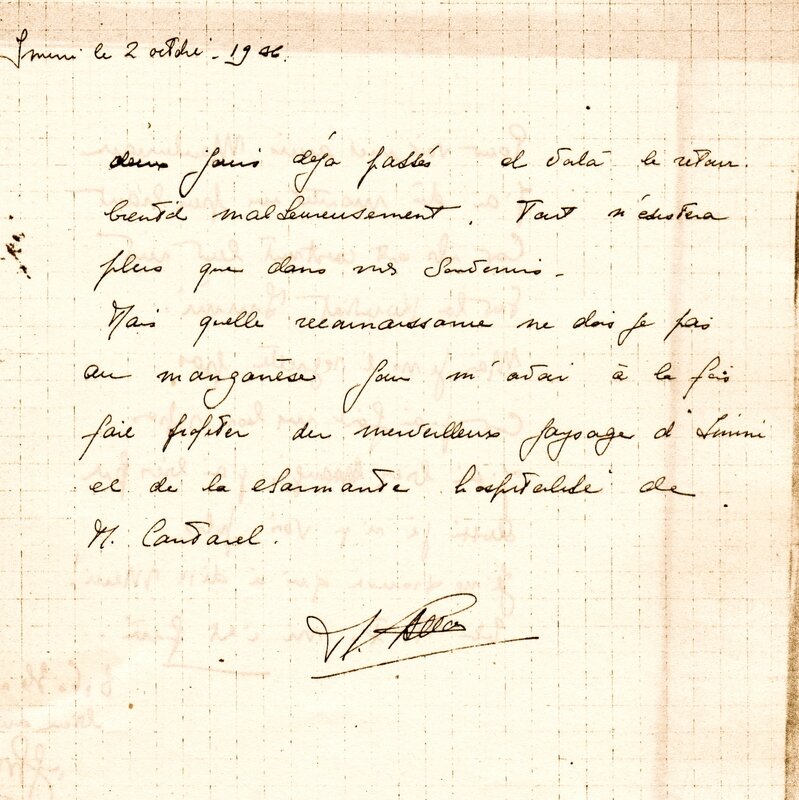 Imini le 2 octobre - 1946.
deux jours déjà passés et voilà le retour
bientôt malheureusement. Tout n'existera
plus que dans mes souvenirs -
Mais quelle reconnaissance ne dois je pas
au manganèse pour m'avoir à la fois
fait profiter du merveilleux paysage d'Imini
et de la charmante hospitalité de
M. Cantarel.